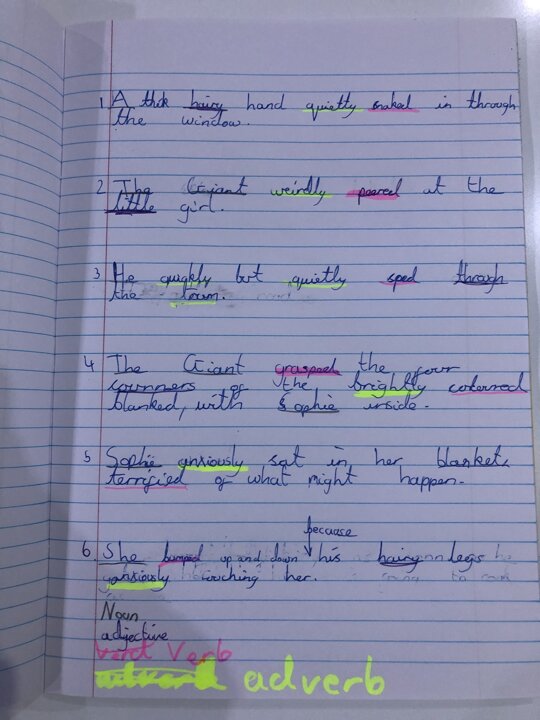 1 A thik hairy hand quietly snaked in through
the window.
2 The Giant weirdly peered at the
little girl.
3 He quickly but quietly sped through
the town.
4 The Giant grasped the four
cownners of the brightly colerred
blanked, with Sophie inside.
5 Sophie anxiously sat in her blanket,
terrified of what might happen.
because
6. She bumped up and down his hairy legs
anxiously touching her.
Noun
adjective
Verb
adverb